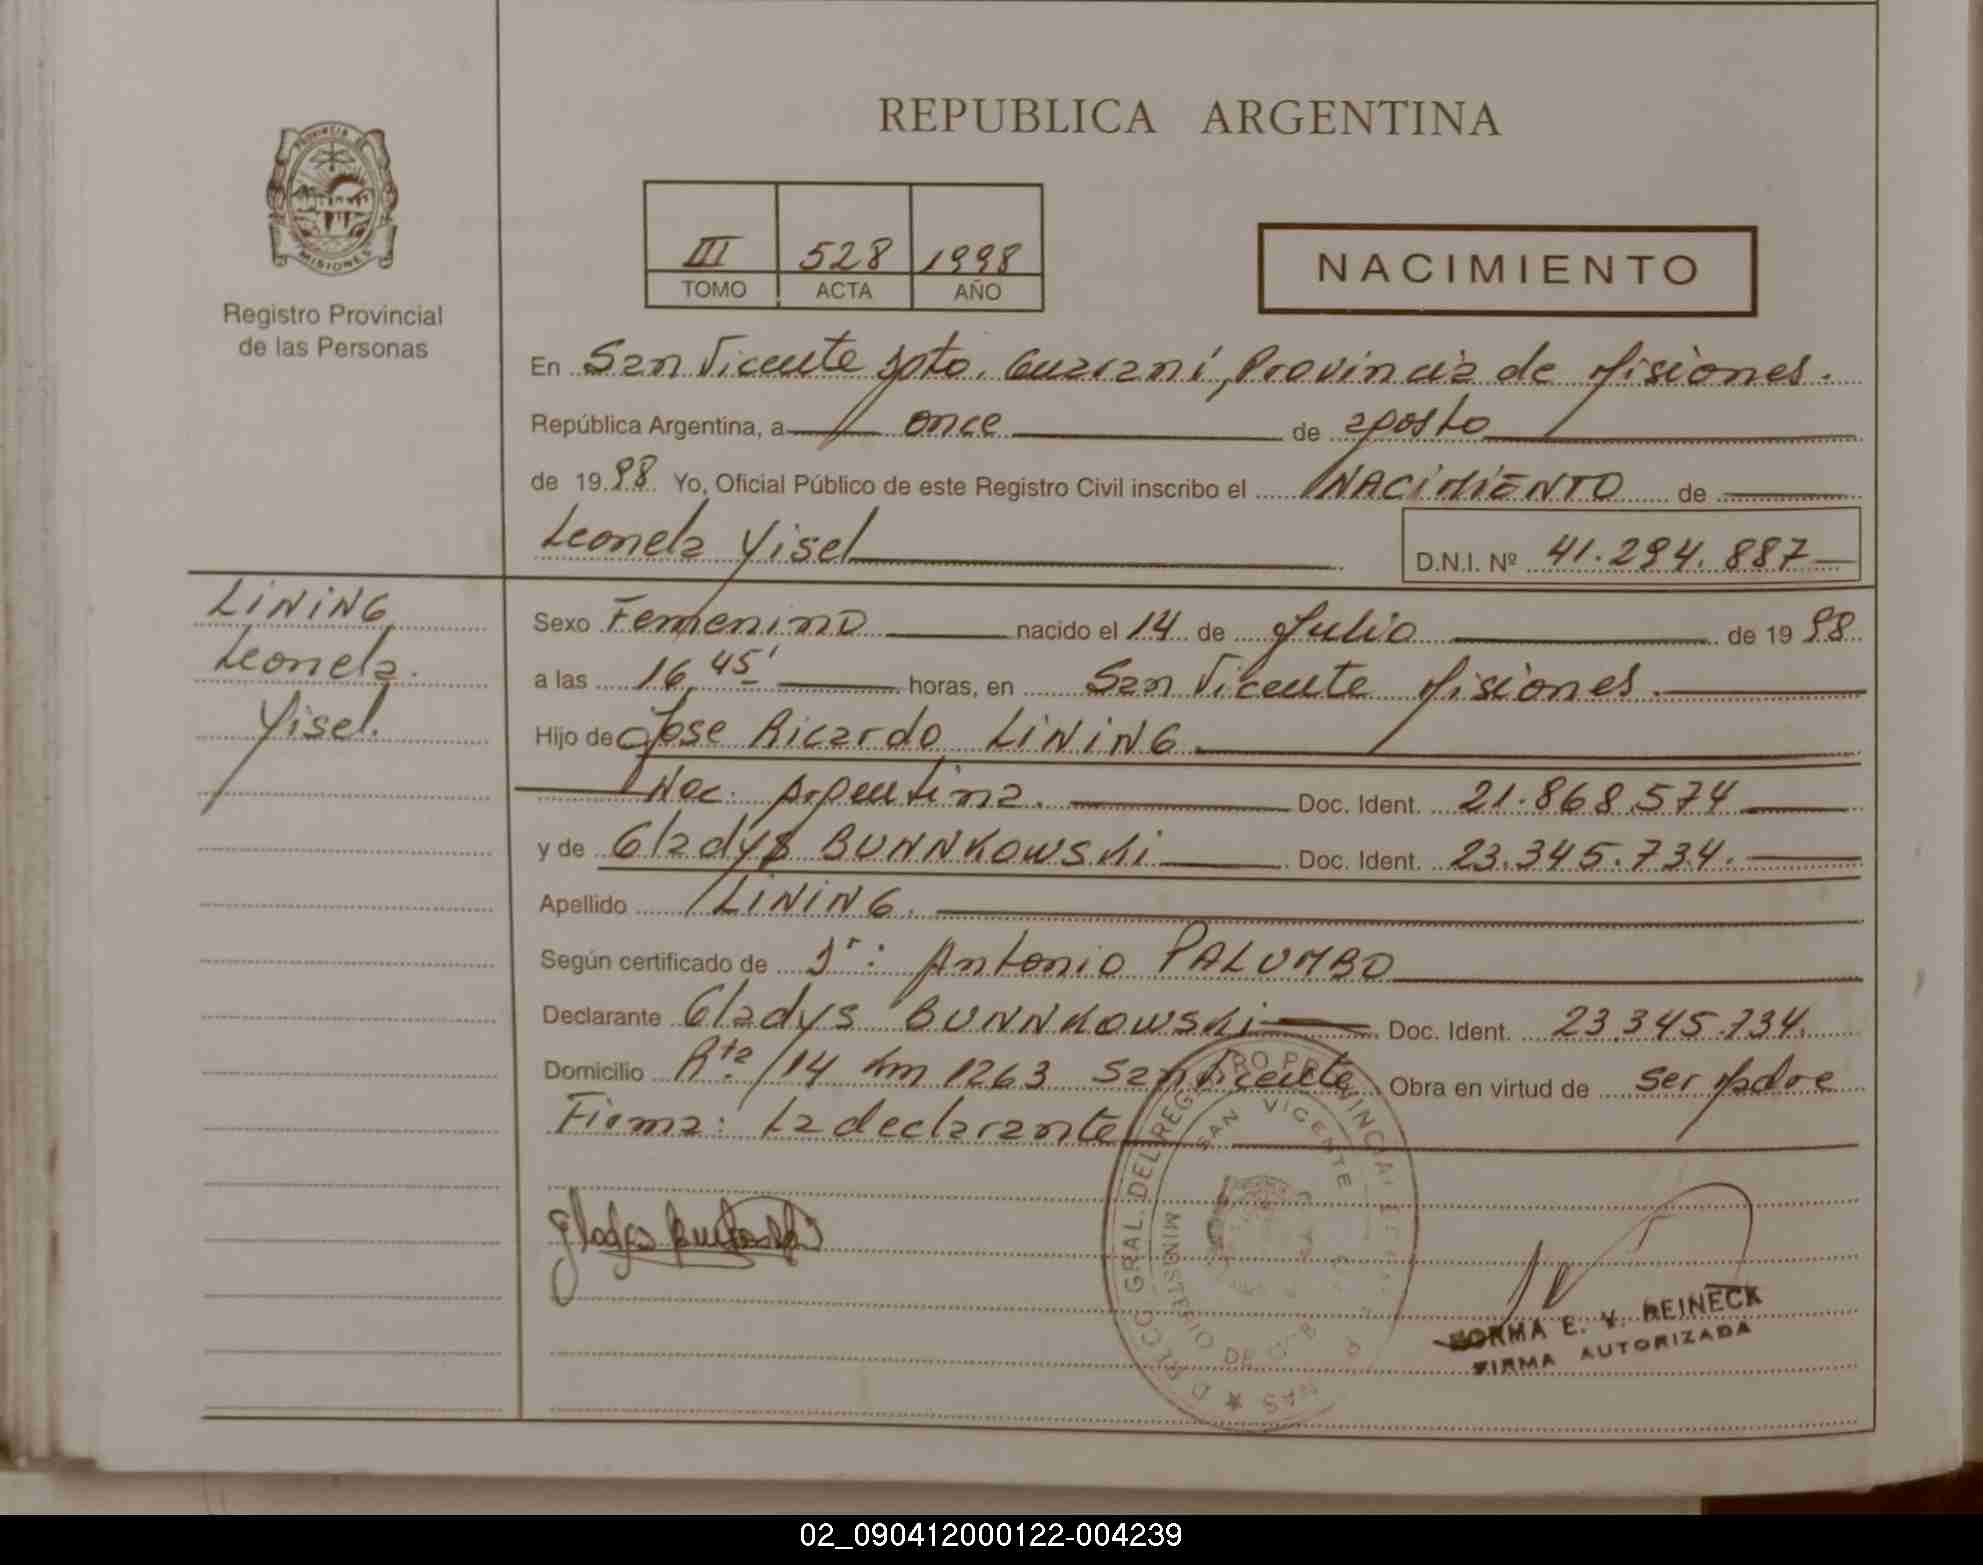 REPUBLICA ARGENTINA
PROVINCIA DE
MISIONES
Registro Provincial
de las Personas
III 528 1998
TOMO ACTA AÑO
NACIMIENTO
En San Vicente Dpto. Guaraní, Provincia de Misiones.
República Argentina, a once de agosto
de 1998 Yo, Oficial Público de este Registro Civil inscribo el NACIMIENTO de
Leonela Yisel D.N.I. Nº 41.294.887
LINING
Leonela.
Yisel.
Sexo Femenino nacido el 14 de Julio de 1998
a las 16,45' horas, en San Vicente Misiones.
Hijo de Jose Ricardo LINING
Nac. Argentina. Doc. Ident. 21.868.574
y de Gladys BUNNKOWSKI Doc. Ident. 23.345.734.
Apellido LINING.
Según certificado de Dr: Antonio PALUMBO
Declarante Gladys BUNNKOWSKI Doc. Ident. 23.345.734.
Domicilio Rta/14 km 1263 San Vicente Obra en virtud de ser Madre
Firma: La declarante
GRAL. DEL REGISTRO PROVINCIAL
SAN VICENTE
MINISTERIO DE
NORMA E. V. REINECK
FIRMA AUTORIZADA
02_090412000122-004239